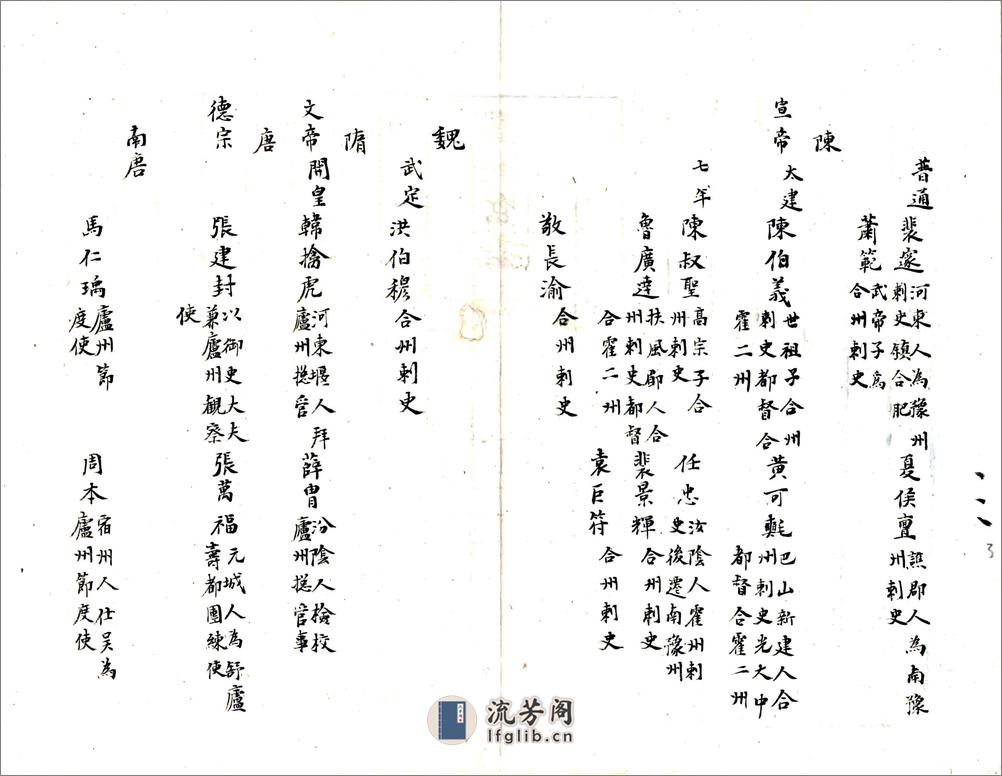 普通 裴邃 河東人為豫州刺史鎮合肥 夏侯亶 譙郡人為南豫州刺史
蕭範 武帝子為合州刺史
陳
宣帝 太建 陳伯義 世祖子合州刺史都督合霍二州 黃可㲠 巴山新建人合州刺史光大中都督合霍二州
七年 陳叔聖 高宗子合州刺史 任忠 汝陰人霍州刺史後遷南豫州
魯廣達 扶風郿人合州刺史都督合霍二州 裴景輝 合州刺史
敬長渝 合州刺史 袁巨符 合州刺史
魏
武定 洪伯穆 合州刺史
隋
文帝 開皇 韓擒虎 河東垣人拜廬州摠管 薛胄 汾陰人檢校廬州摠管事
唐
德宗 張建封 以御史大夫兼廬州觀察使 張萬福 元城人為舒廬壽都團練使
南唐
馬仁瑀 廬州節度使 周本 宿州人仕吴為廬州節度使
3
流芳阁
lfglib.cn